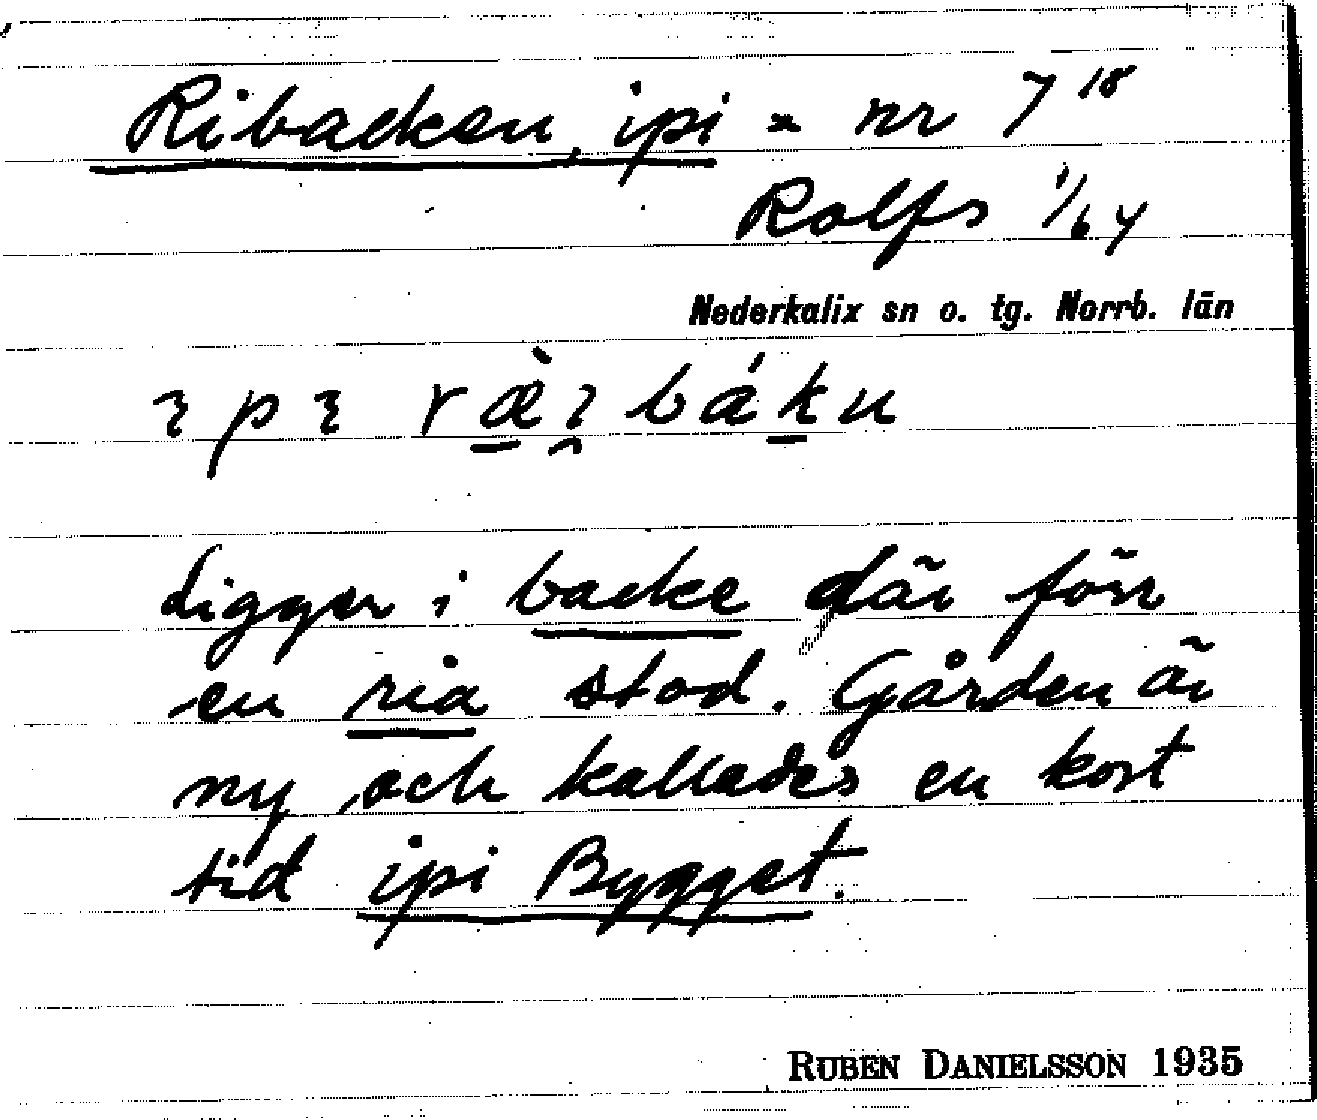 Ribacken, ipi = nr 7 18
Rolfs 1/64
Nederkalix sn o. tg. Norrb. län
ɩpɩ ræ̀ɩ̯báku
Ligger i backe där förr
en ria stod. Gården är
ny, och kallades en kort
tid ipi Bygget.
RUBEN DANIELSSON 1935